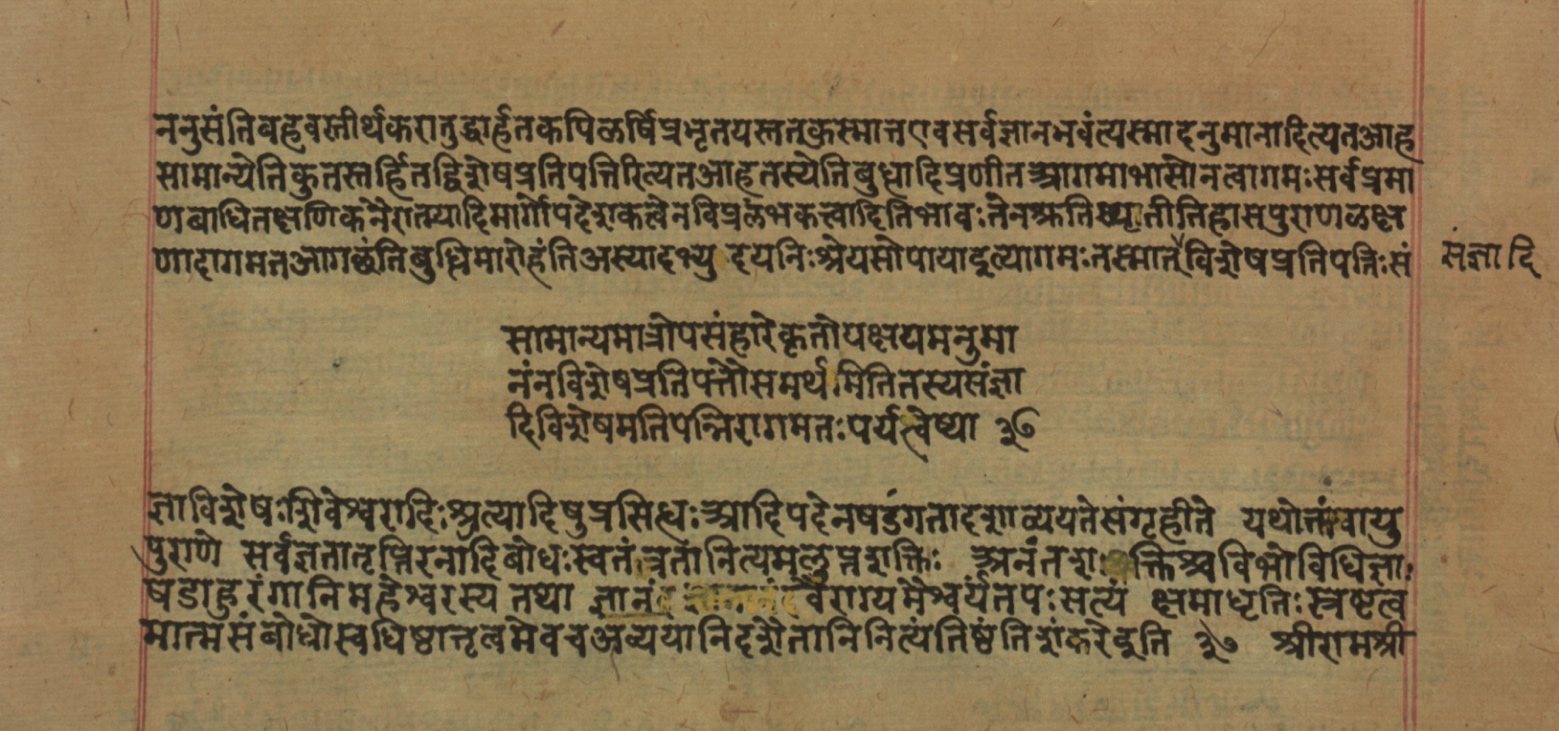 ननुसंतिबहवस्तीर्थकरातुद्धार्हतकपिळर्षिप्रभृतयस्ततक्रस्मात्तएवसर्वज्ञानभवंत्यस्मादनुमानादित्यतआह
सामान्येतिकुतस्तर्हितद्विशेषप्रतिपत्तिरित्यतआहतस्येतिबुध्धादिप्रणीतआगमाभासोनत्वागमःसर्वप्रमा
णबाधितक्षणिकनैरात्म्यादिमार्गोपदेशकत्वेनविप्रलंभकत्त्वादितिभावःतेनश्रुतिस्मृतीतिहासपुराणळक्ष
णादागमतआगछंतिबुध्धिमारोहंतिअस्यादभ्युदयनिःश्रेयसोपायाइत्यागमःतस्मात्विशेषप्रतिपत्तिःसं
संज्ञादि
सामान्यमात्रोपसंहारेकृतोपक्षयमनुमा
नंनविशेषप्रतिपत्तौसमर्थमितितस्यसंज्ञा
दिविशेषमतिपत्तिरागमतःपर्यत्वेष्या ३७
ज्ञाविशेषःशिवेश्वरादिःश्रुत्यादिषुप्रसिध्धःआदिपदेनषडंगतादशाव्ययतेसंगृहीते यथोक्तंवायु
पुराणे सर्वज्ञतातृप्तिरनादिबोधःस्वतंत्रतानित्यमलुप्तशक्तिः अनंतशक्तिश्चविभोविधिज्ञाः
षडाहुरंगानिमहेश्वरस्य तथा ज्ञानं वैराग्यमैश्वर्यंतपःसत्यं क्षमाधृतिःस्त्रष्टृत्व
मात्मसंबोधोस्वधिष्ठात्तृत्वमेवचअव्ययानिदशैतानिनित्यंतिष्ठंतिशंकरेइति ३७ श्रीरामश्री